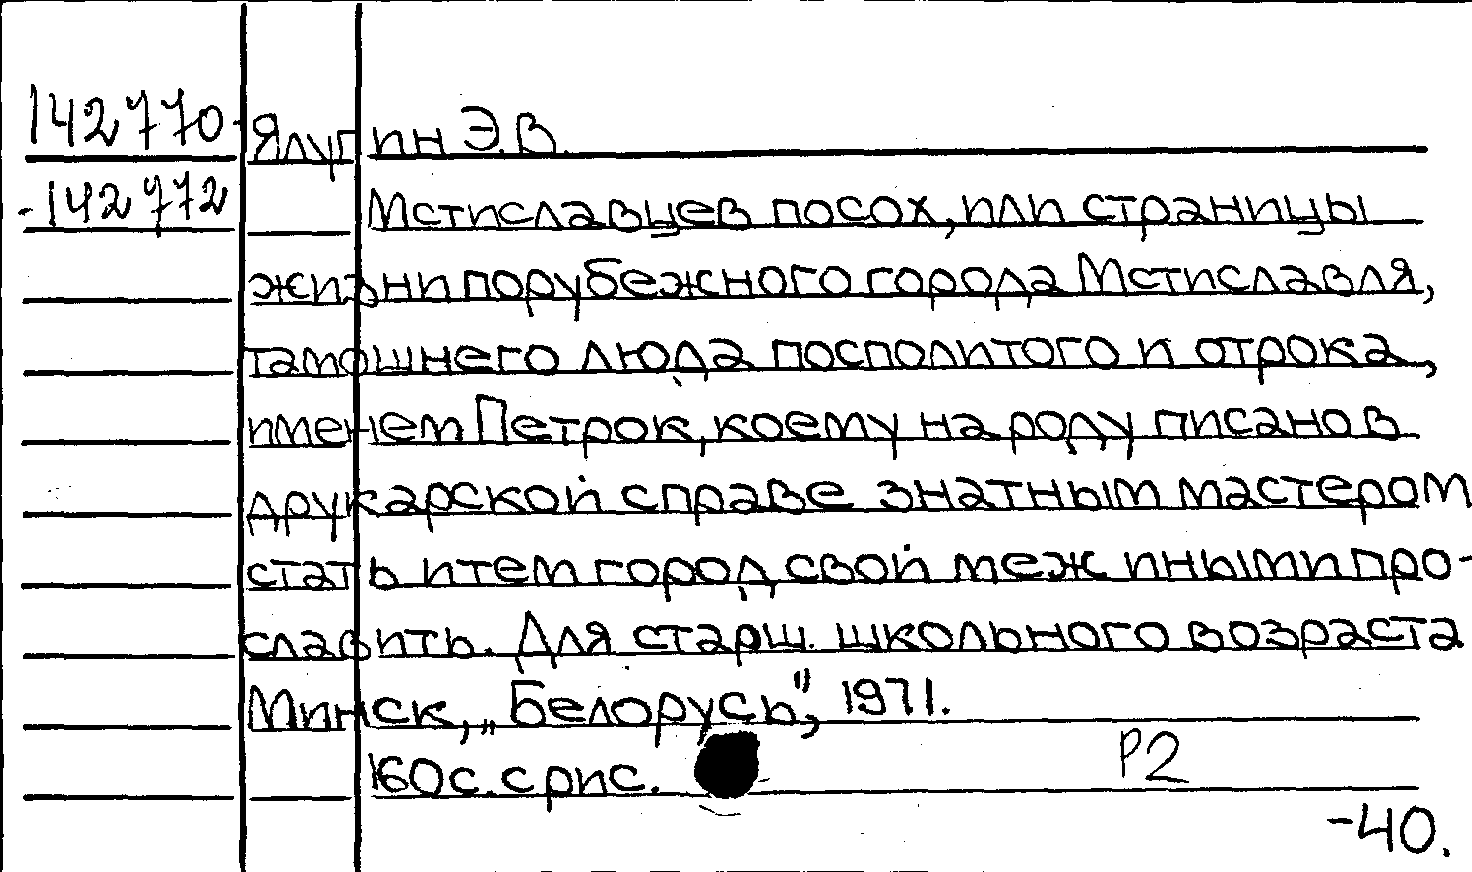 142770 Ялугин Э.В.
-142772 Мстиславцев посох, или страницы
жизни порубежного города Мстиславля,
тамошнего люда посполитого и отрока,
именем Петрок, коему на роду писано в
друкарской справе знатным мастером
стать и тем город свой меж иными про-
славить. Для старш. школьного возраста
Минск, „Белорусь", 1971.
160с. с рис. Р2
-40.